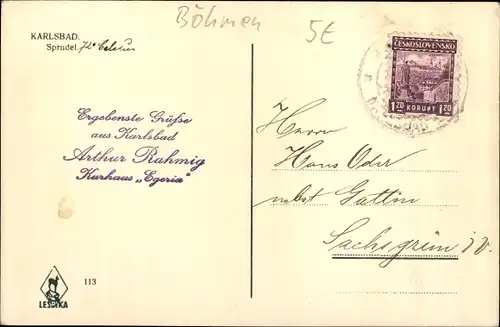 Böhmen
5€
KARLSBAD.
Sprudel. 72° Celsius
ČESKOSLOVENSKO
1 20 KORUNY 1 20
Ergebenste Grüße
aus Karlsbad
Arthur Rahmig
Kurhaus „Egeria"
Herrn
Hans Oder
nebst Gattin
Sachsgrün i. V.
113